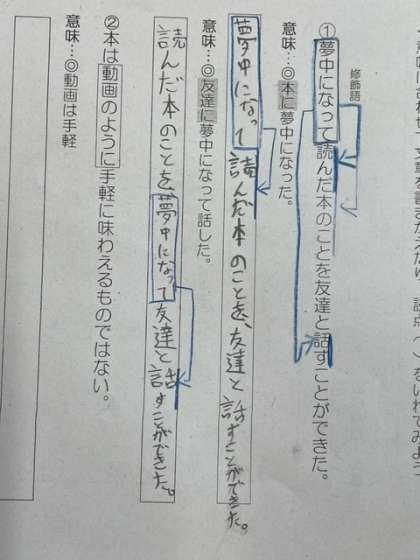 文章を書きかえたり、読点(、)をいれてみよう
修飾語
①夢中になって読んだ本のことを友達と話すことができた。
意味…◎本に夢中になった。
夢中になって読んだ本のことを、友達と話すことができた。
意味…◎友達に夢中になって話した。
読んだ本のことを夢中になって友達と話すことができた。
②本は動画のように手軽に味わえるものではない。
意味…◎動画は手軽